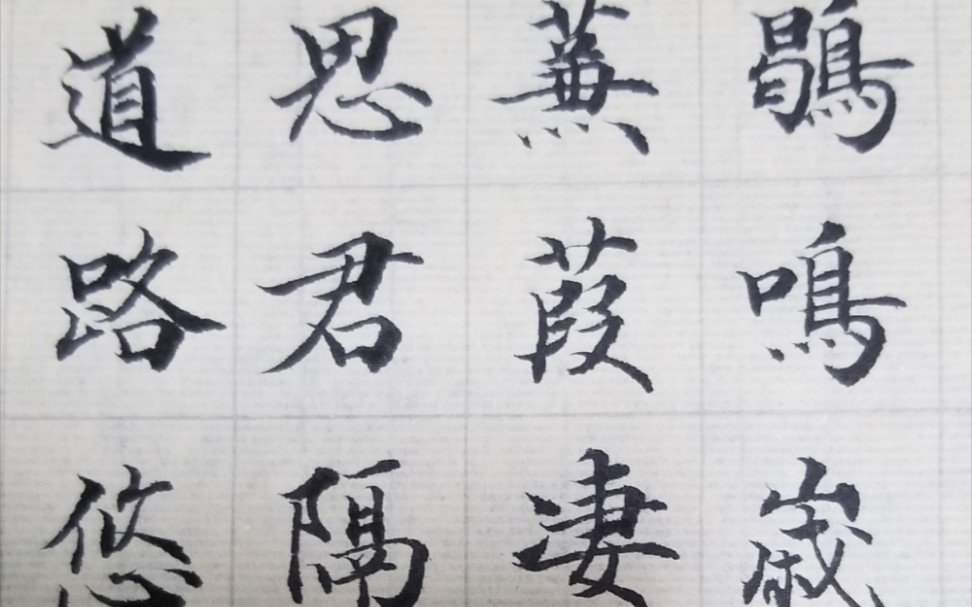 鶡鳴歲
蒹葭凄
思君隔
道路悠